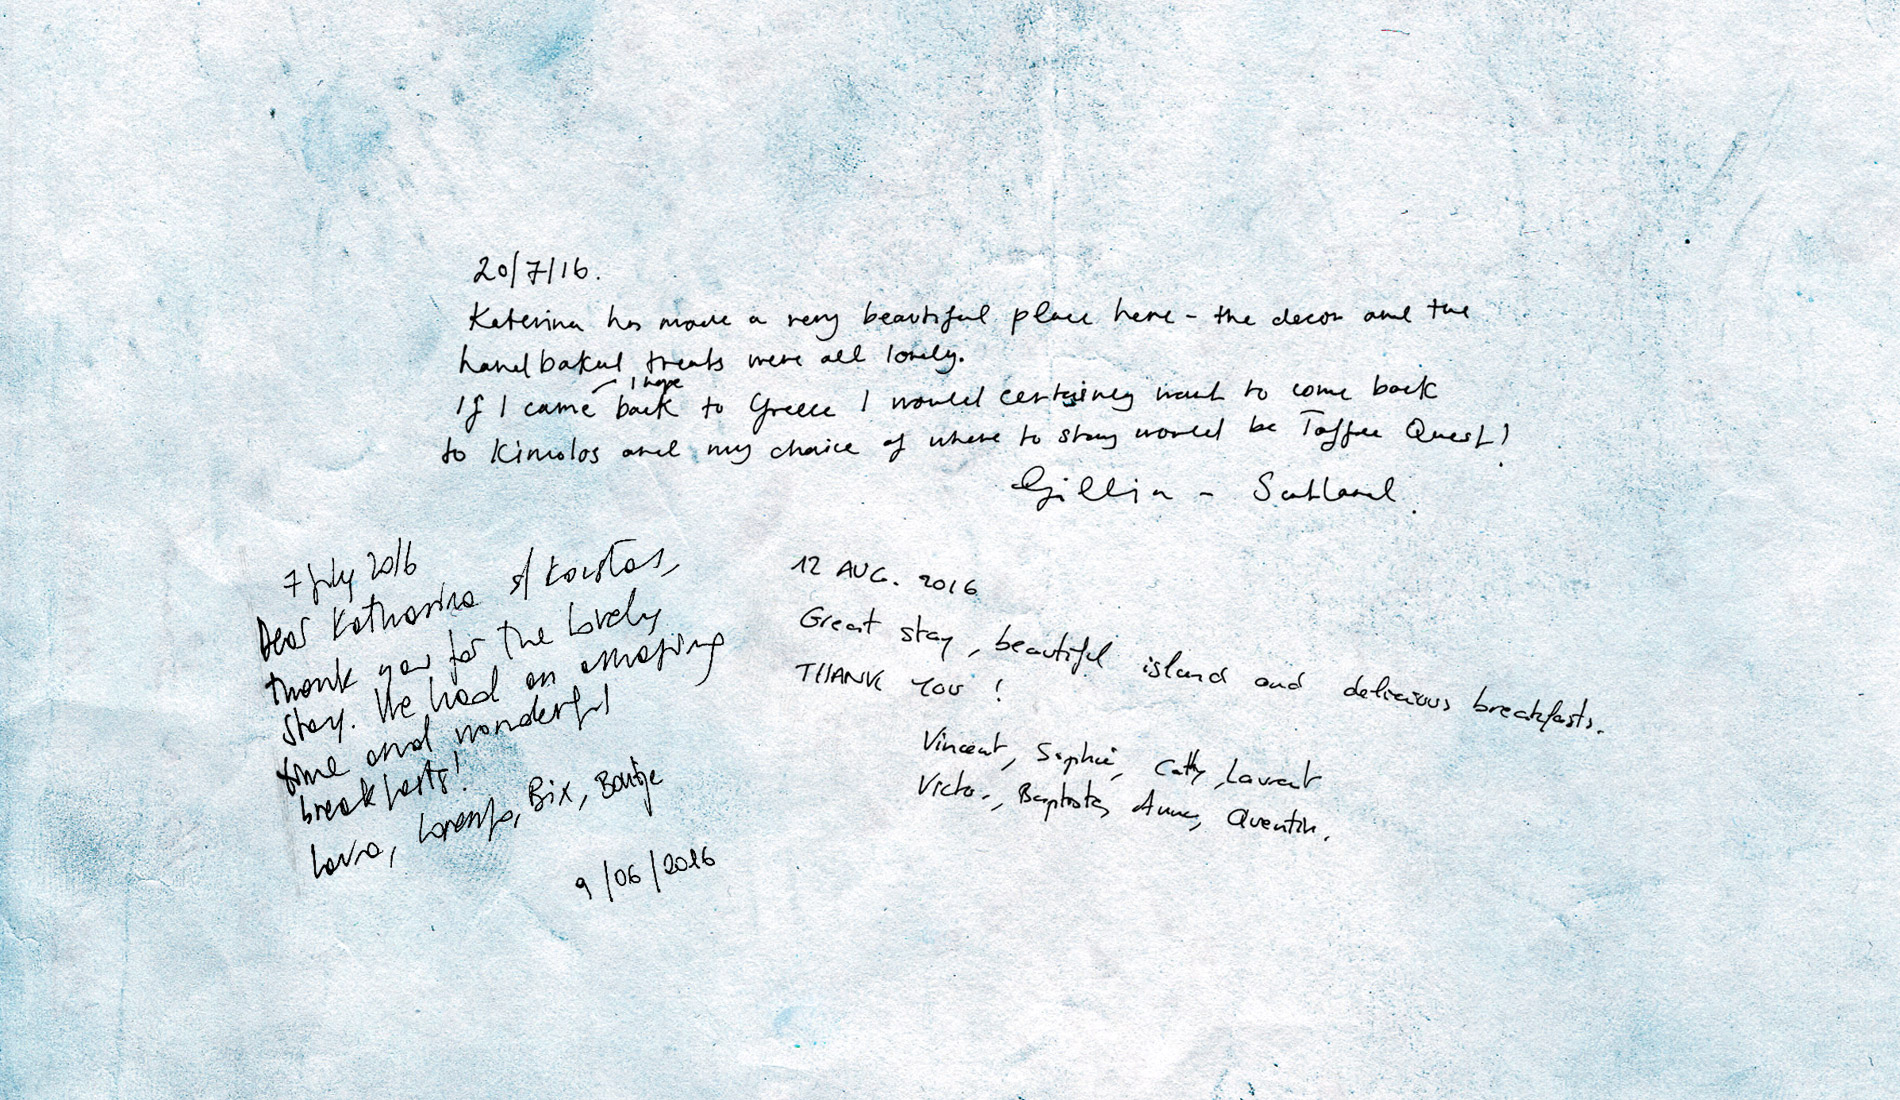 20/7/16.
Katerina has made a very beautiful place here - the decor and the
hand baked treats were all lovely.
I hope
If I came back to Greece I would certainly want to come back
to Kimolos and my choice of where to stay would be Taffee Quest!
Gillian - Scotland.
7 July 2016
Dear Katharina & Kostas,
thank you for the lovely
stay. We had an amazing
time and wonderful
breakfasts!
Lorenzo, Bix,
9/06/2016
12 AUG. 2016
Great stay, beautiful island and delicious breakfasts.
THANK YOU !
Vincent, Sophie, Cathy, Laurent
Victor, Baptiste, Anne, Quentin.